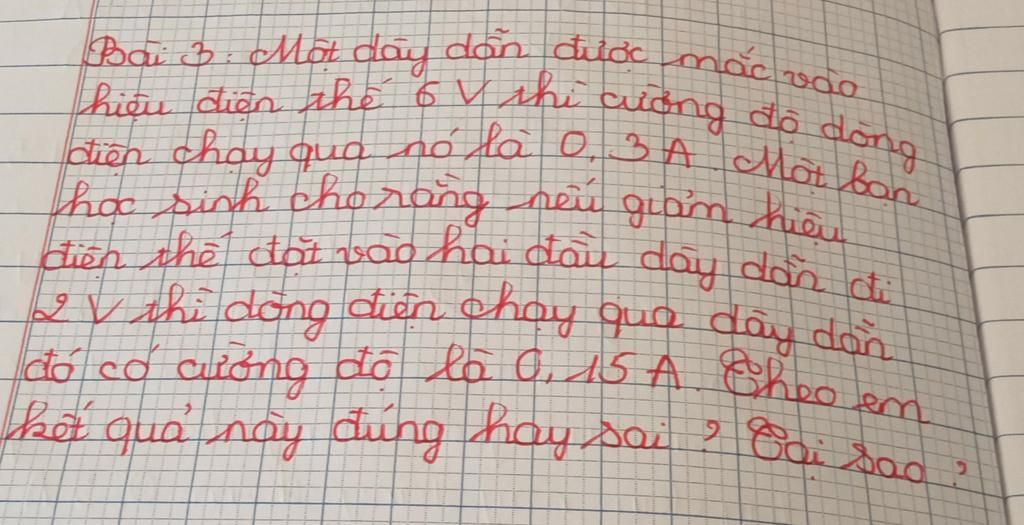 Bài 3: Một dây dẫn được mắc vào
hiệu điện thế 6 V thì cường độ dòng
điện chạy qua nó là 0,3A. Một bạn
học sinh cho rằng nếu giảm hiệu
điện thế đặt vào hai đầu dây dẫn đi
2 V thì dòng điện chạy qua dây dẫn
đó có cường độ là 0,15A. Theo em
kết quả này đúng hay sai? Tại sao?